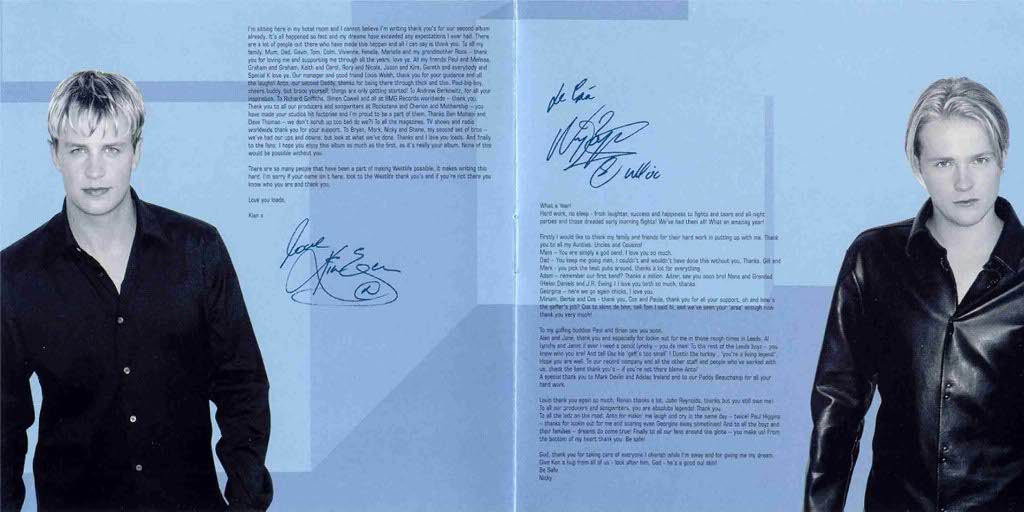 I'm sitting here in my hotel room and I cannot believe I'm writing thank you's for our second album
already. It's all happened so fast and my dreams have exceeded any expectations I ever had. There
are a lot of people out there who have made this happen and all I can say is thank you. To all my
family, Mum, Dad, Gavin, Tom, Colm, Vivienne, Fenella, Marielle and my grandmother Rose - thank
you for loving me and supporting me through all the years, love ya. All my friends Paul and Melissa,
Graham and Graham, Keith and Carol, Rory and Nicola, Jason and Kira, Gareth and everybody and
Special K love ya. Our manager and good friend Louis Walsh, thank you for your guidance and all
the laughs! Anto, our second Daddy, thanks for being there through thick and thin. Paul-big-boy,
cheers buddy, but brace yourself, things are only getting started! To Andrew Berkowitz, for all your
inspiration. To Richard Griffiths, Simon Cowell and all at BMG Records worldwide - thank you.
Thank you to all our producers and songwriters at Rokstone and Cheiron and Mothership - you
have made your studios hit factories and I'm proud to be a part of them. Thanks Ben Mohapi and
Dave Thomas - we don't scrub up too bad do we?! To all the magazines, TV shows and radio
worldwide thank you for your support. To Bryan, Mark, Nicky and Shane, my second set of bros -
we've had our ups and downs, but look at what we've done. Thanks and I love you loads. And finally
to the fans: I hope you enjoy this album so much as the first, as it's really your album. None of this
would be possible without you.
There are so many people that have been a part of making Westlife possible, it makes writing this
hard. I'm sorry if your name isn't here, look to the Westlife thank you's and if you're not there you
know who you are and thank you.
Love you loads,
Kian x
love
Kian Egan
What a Year!
Hard work, no sleep - from laughter, success and happiness to fights and tears and all-night
parties and those dreaded early morning flights! We've had them all! What an amazing year!
Firstly I would like to thank my family and friends for their hard work in putting up with me. Thank
you to all my Aunties, Uncles and Cousins!
Mam - You are simply a god send, I love you so much.
Dad - You keep me going man, I couldn't and wouldn't have done this without you. Thanks. Gill and
Mark - you pick the best pubs around, thanks a lot for everything.
Adam - remember our first band? Thanks a million. Adzer, see you soon bro! Nana and Grandad
(Helen Daniels and J.R. Ewing.) I love you both so much, thanks.
Georgina - here we go again chicks, I love you.
Miriam, Bertie and Ces - thank you, Ces and Paula, thank you for all your support, oh and how's
the gaffer's job? Cos to skinn de binn, tell Tom I said hi, and we've seen your 'arsa' enough now
thank you very much!
To my golfing buddies Paul and Brian see you soon.
Alan and Jane, thank you and especially for lookin out for me in those rough times in Leeds. Al
Lynchy and Janno if ever I need a pencil Lynchy - you da man! To the rest of the Leeds boys - you
know who you are! And tell Uss his 'gaff's too small'! Dustin the turkey... 'you're a living legend'.
Hope you are well. To our record company and all the other staff and people who we worked with
us, check the band thank you's - if you're not there blame Anto!
A special thank you to Mark Devlin and Adidas Ireland and to our Paddy Beauchamp for all your
hard work.
Louis thank you again so much, Ronan thanks a lot, John Reynolds, thanks but you still owe me!
To all our producers and songwriters, you are absolute legends! Thank you.
To all the ladz on the road, Anto for makin' me laugh and cry in the same day - twice! Paul Higgins
- thanks for lookin out for me and scaring even Georgina away sometimes! And to all the boys and
their families - dreams do come true! Finally to all our fans around the globe - you make us! From
the bottom of my heart thank you. Be safe!
God, thank you for taking care of everyone I cherish while I'm away and for giving me my dream.
Give Ken a hug from all of us - look after him, God - he's a good oul skin!
Be Safe
Nicky